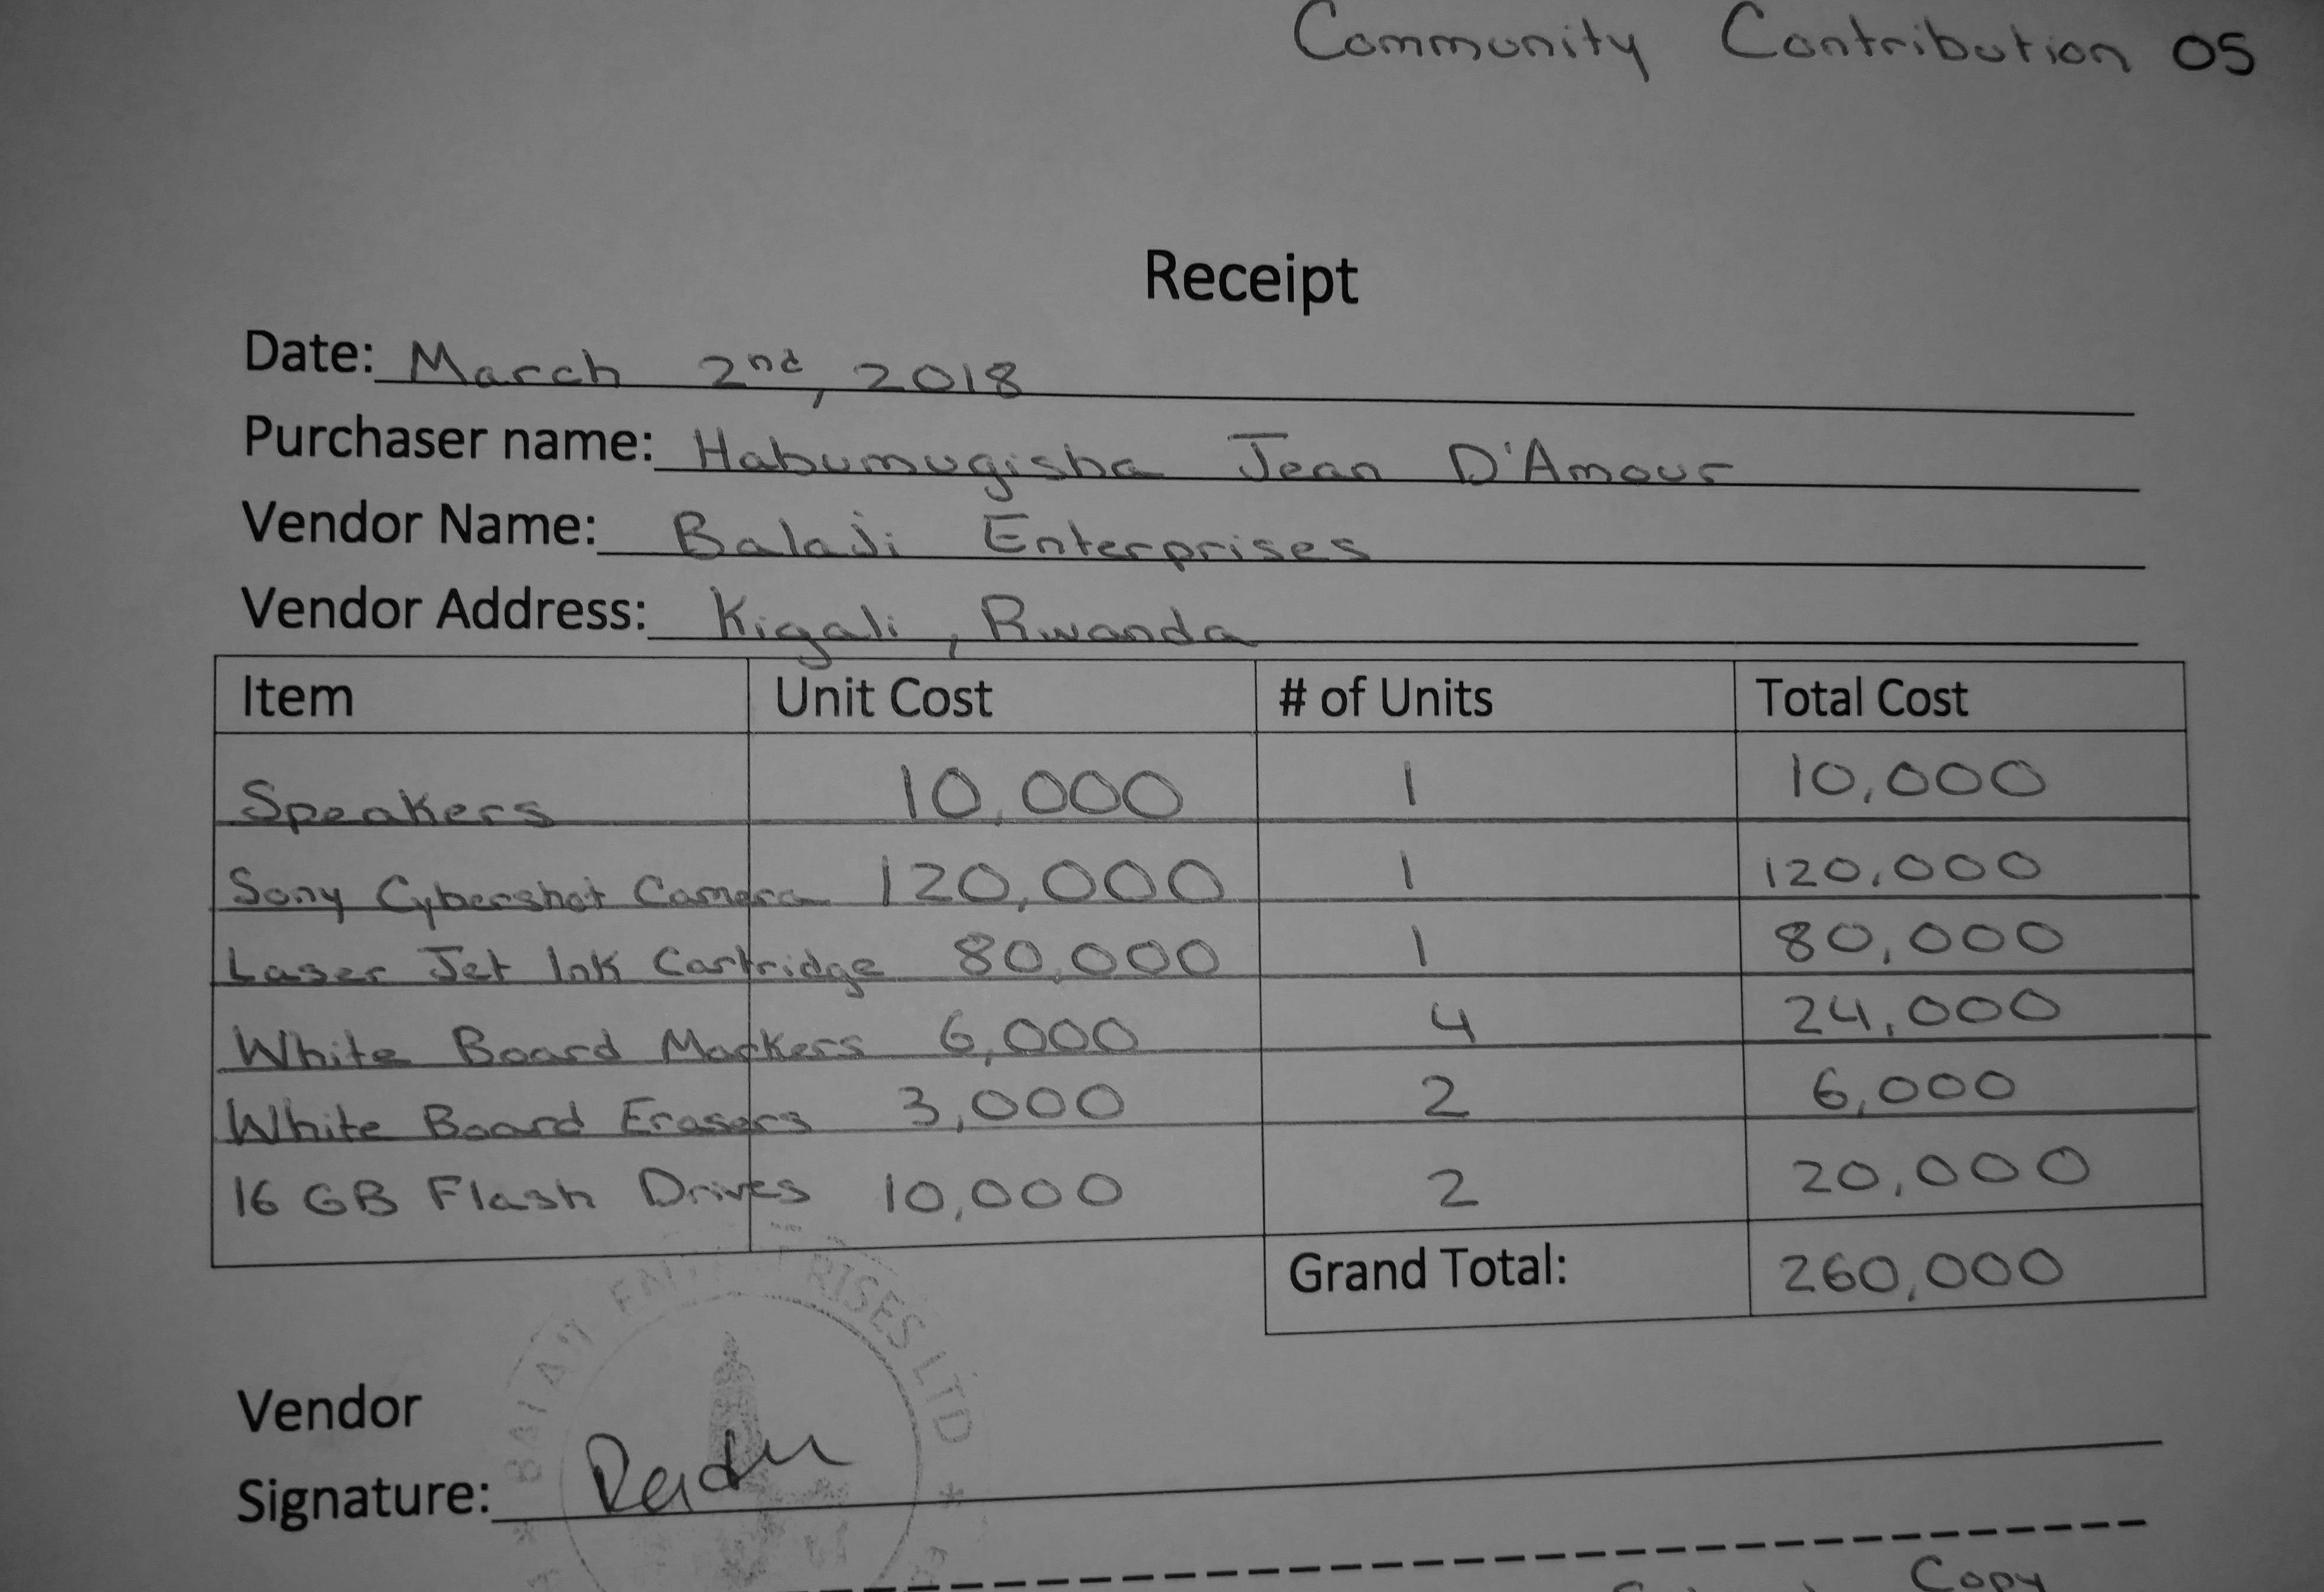 Community Contribution 05
Receipt
Date: March 2nd, 2018
Purchaser name: Habumugisha Jean D'Amour
Vendor Name: Balaji Enterprises
Vendor Address: Kigali, Rwanda
Item Unit Cost # of Units Total Cost
Speakers 10,000 1 10,000
Sony Cybershot Camera 120,000 1 120,000
Laser Jet Ink Cartridge 80,000 1 80,000
White Board Markers 6,000 4 24,000
White Board Erasers 3,000 2 6,000
16 GB Flash Drives 10,000 2 20,000
Grand Total: 260,000
LTD
Vendor
Signature:
Copy